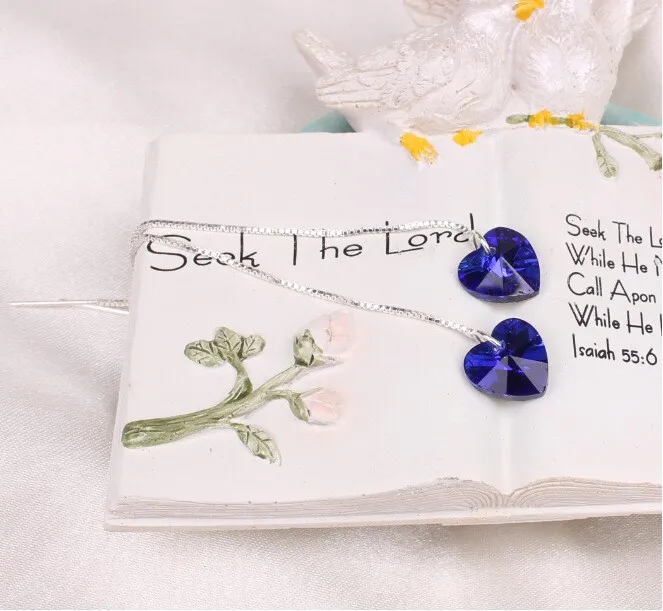 Seek The Lord
Seek The
While He
Call Apon
While He
Isaiah 55:6